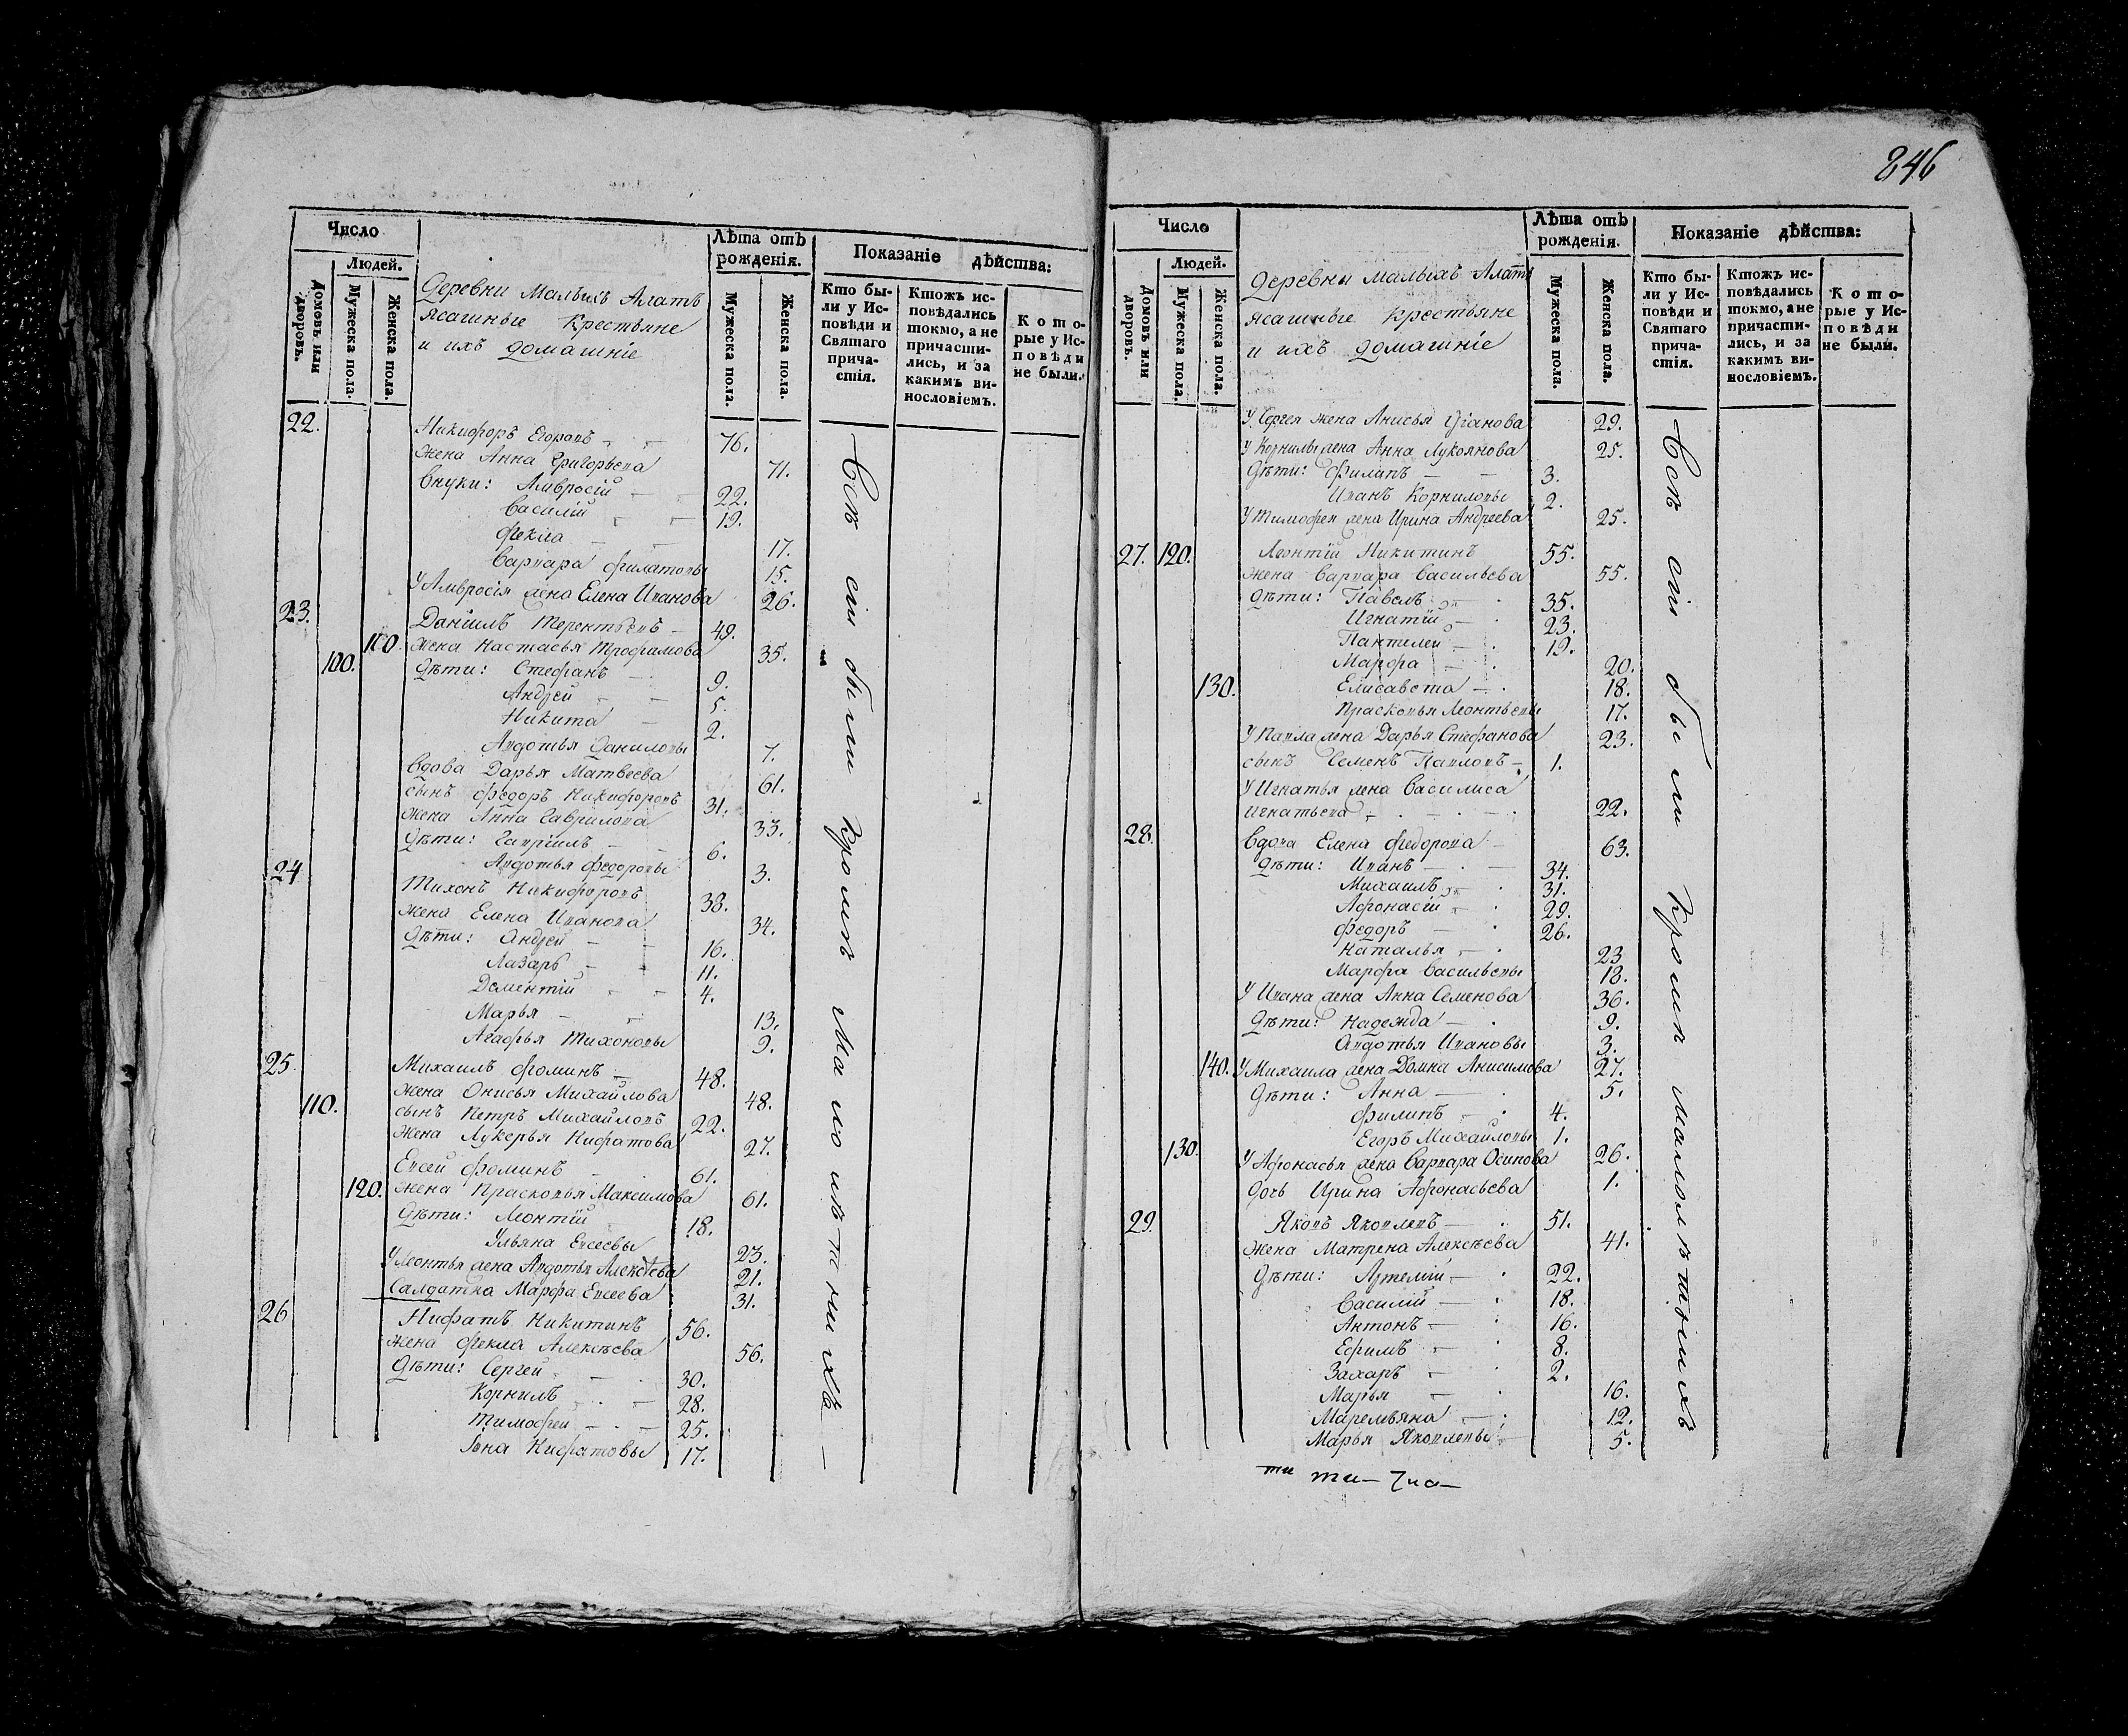 Число
Людей.
Домовъ или дворовъ.
Мужеска пола.
Женска пола.
Деревни Малыхъ Алатъ
ясашные крестьяне
и ихъ домашніе
Лѣта отъ рожденія.
Мужеска пола.
Женска пола.
Показаніе дѣйства:
Кто бы-
ли у Ис-
повѣди и
Святаго
прича-
стія.
Ктожъ ис-
повѣдались
токмо, а не
причасти-
лись, и за
какимъ ви-
нословіемъ.
Кото-
рые у Ис-
повѣди
не были.
22. Никифоръ Егоровъ 76.
жена Анна Григорьева 71.
внуки: Амвросій 22.
Василій 19.
Фекла 17.
Варвара Филатовы 15.
У Амвросія жена Елена Иванова 26.
23. Даніилъ Терентьевъ 49.
100. жена Настасья Трофимова 35.
100. дѣти: Стефанъ 9.
Андрей 5.
Никита 2.
Авдотья Даниловы 7.
вдова Дарья Матвеева 61.
сынъ Федоръ Никифоровъ 31.
жена Анна Гаврилова 33.
дѣти: Гавріилъ 6.
Авдотья Федоровы 3.
24 Тихонъ Никифоровъ 38.
жена Елена Иванова 34.
дѣти: Андрей 16.
Лазарь 11.
Дементій 4.
Марья 13.
Агафья Тихоновы 9.
25. Михаилъ Фоминъ 48.
жена Онисья Михайлова 48.
110. сынъ Петръ Михайловъ 22.
жена Лукерья Нифатова 27.
Евсей Фоминъ 61.
120. жена Прасковья Максимова 61.
дѣти: Леонтій 18.
Ульяна Евсеевы 23.
У Леонтья жена Авдотья Алексѣева 21.
Салдатка Марфа Евсеева 31.
26 Нифатъ Никитинъ 56.
жена Фекла Алексѣева 56.
дѣти: Сергей 30.
Корнилъ 28.
Тимофей 25.
Нифатовы 17.
Всѣ сіи были кромѣ малолѣтнихъ
846
Число
Людей.
Домовъ или дворовъ.
Мужеска пола.
Женска пола.
Деревни Малыхъ Алатъ
ясашные крестьяне
и ихъ домашніе
Лѣта отъ рожденія.
Мужеска пола.
Женска пола.
Показаніе дѣйства:
Кто бы-
ли у Ис-
повѣди и
Святаго
прича-
стія.
Ктожъ ис-
повѣдались
токмо, а не
причасти-
лись, и за
какимъ ви-
нословіемъ.
Кото-
рые у Ис-
повѣди
не были.
У Сергея жена Анисья 29.
У Корнилы жена Анна Лукоянова 25.
дѣти: Филапъ 3.
Иванъ Корниловы 2.
У Тимофея жена Ирина Андреева 25.
27. 120. Леонтій Никитинъ 55.
жена Варвара Васильева 55.
дѣти: Павелъ 35.
Игнатій 23.
Пантелей 19.
Марфа 20.
130. Елисавета 18.
Прасковья Леонтьевы 17.
У Павла жена Дарья Стефанова 23.
сынъ Семенъ Павловъ 1.
У Игнатья жена Василиса
Игнатьева 22.
28. вдова Елена Федорова 63.
дѣти: Иванъ 34.
Михаилъ 31.
Афонасій 29.
Федоръ 26.
Наталья 23
Марфа Васильевы 18.
У Ивана жена Анна Семенова 36.
дѣти: Надежда 9.
Авдотья Ивановы 3.
140. У Михаила жена Домна Анисимова 27.
дѣти: Анна 5.
Филипъ 4.
Егоръ Михайловы 1.
130. У Афонасья жена Варвара Осипова 26.
дочь Ирина Афонасьева 1.
29. Яковъ Яковлевъ 51.
жена Матрена Алексѣева 41.
дѣти: Артемій 22.
Василій 18.
Антонъ 16.
Ефимъ 8.
Захаръ 2.
Марья 16.
Маремьяна 12.
Марья Яковлевы 5.
Всѣ сіи были кромѣ малолѣтнихъ